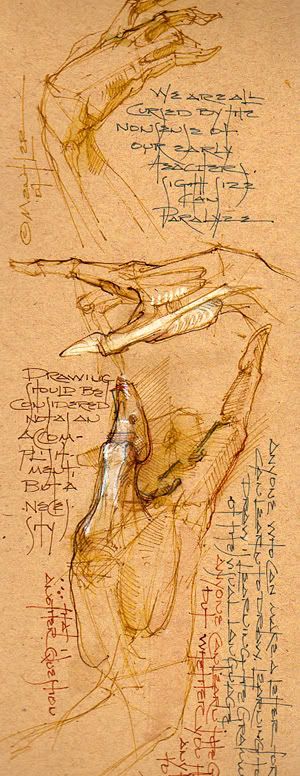 WE ARE ALL
CURSED BY THE
NONSENSE OF
OUR EARLY
TEACHERS.
SIGHT SIZE
CAN
PARALYZE
© MENTLER
DRAWING
SHOULD BE
CONSIDERED
NOT AS AN
ACCOM-
PLISH
MENT
BUT A
NECES
SITY
ANYONE WHO CAN MAKE A LETTER FOR
CAN LEARN TO DRAW. LEARNING TO
DRAW IS LEARNING THE GRAMMAR
OF THE VISUAL LANGUAGE.
ANYONE CAN LEARN THE
BUT WHETHER YOU
TO
THAT IS
ANOTHER QUESTION